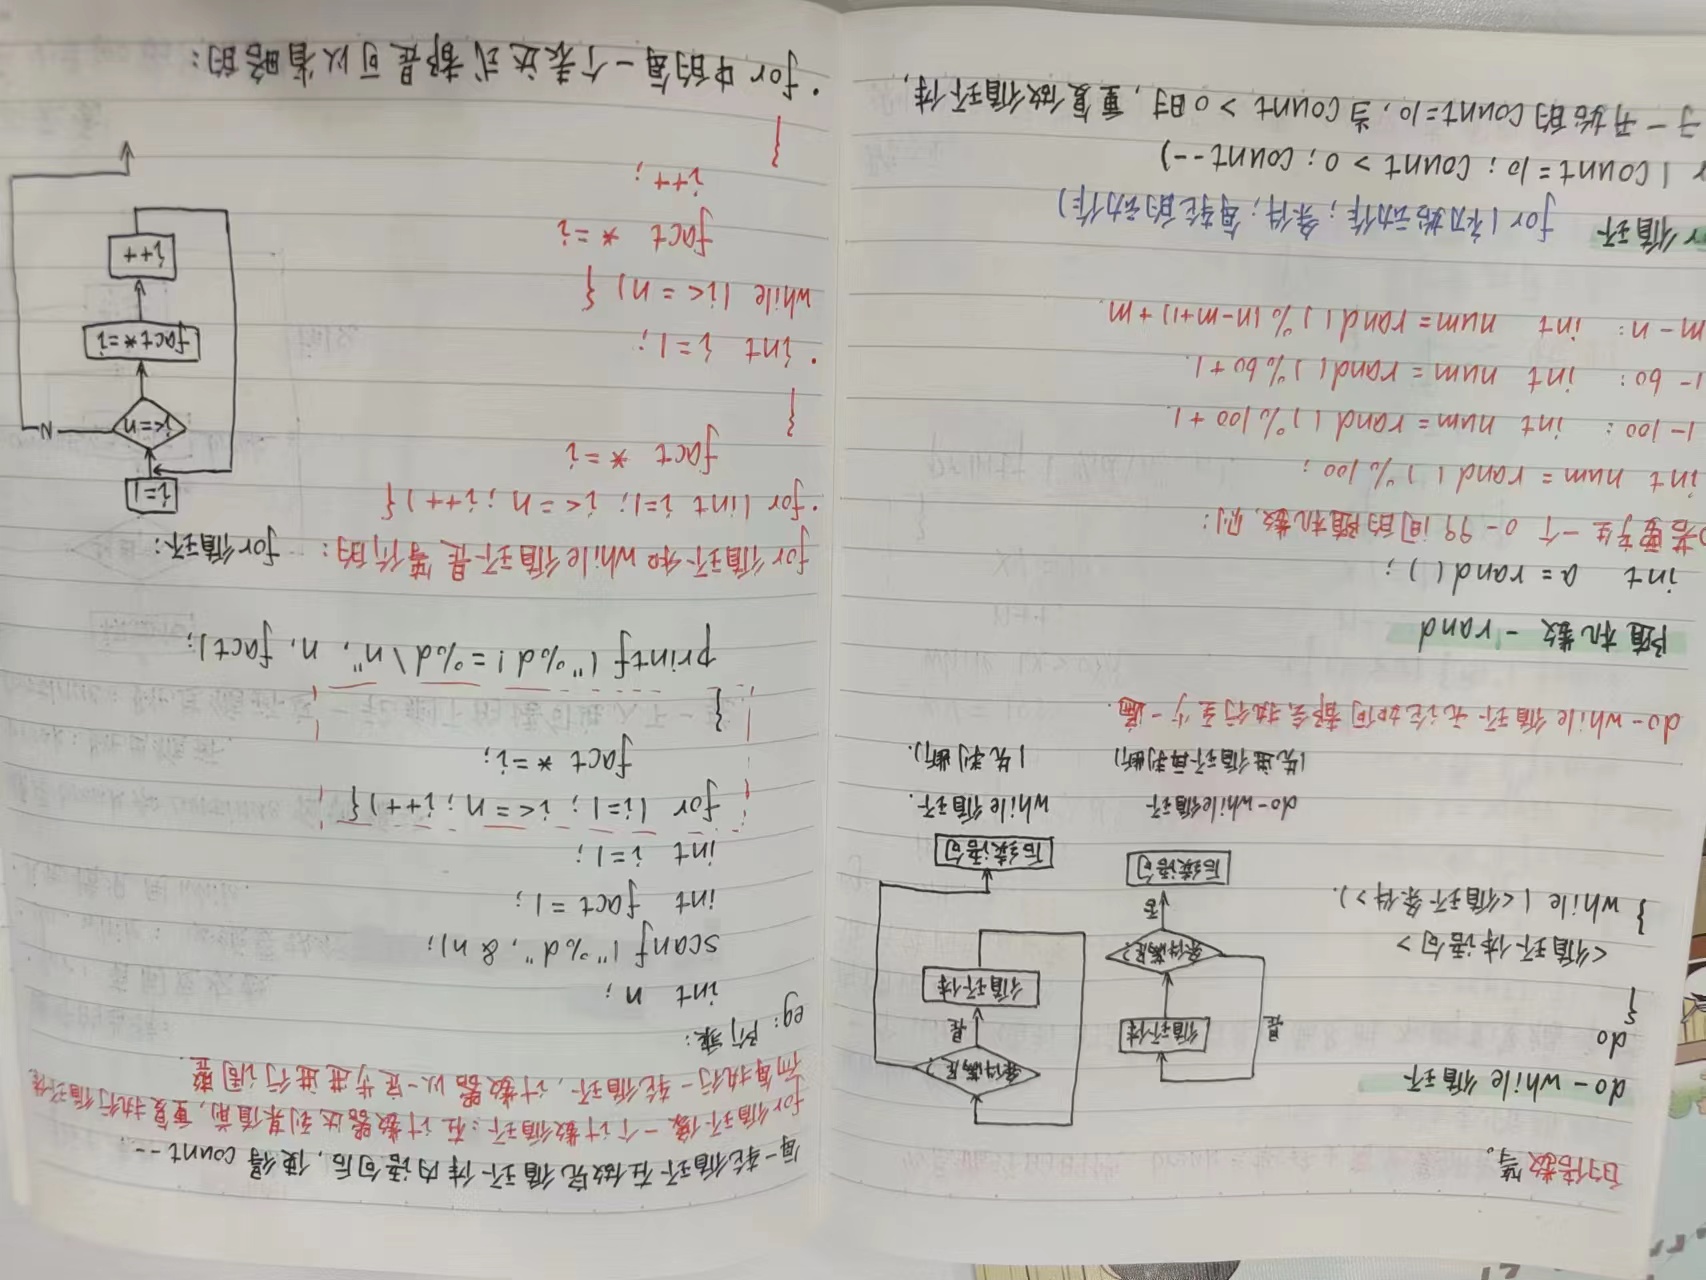 的倍数等。
do-while循环
do
{
<循环体语句>
} while (<循环条件>).
循环体
条件满足?
是
否
后续语句
条件满足?
是
循环体
后续语句
do-while循环 while循环.
(先进循环再判断) (先判断).
do-while循环无论如何都会执行至少一遍.
随机数 - rand
int a = rand( );
若要产生一个 0-99间的随机数,则:
int num = rand( )%100;
1-100: int num = rand( )%100+1
1-60: int num = rand( )%60+1.
m-n: int num = rand( )%(n-m+1)+m.
r 循环 for (初始动作; 条件; 每轮的动作)
r (count=10; count>0; count--)
一开始的count=10, 当count>0时, 重复做循环体,
每一轮循环在做完循环体内语句后, 使得count--;
for循环像一个计数循环:在计数器达到某值前,重复执行循环体
而每执行一轮循环,计数器以一定步进进行调整.
eg: 阶乘:
int n;
scanf("%d", &n);
int fact=1;
int i=1;
for (i=1; i<=n; i++){
fact *=i;
}
printf("%d!=%d\n", n, fact);
for循环和while循环是等价的: for循环:
·for (int i=1; i<=n; i++){
fact *=i
}
·int i=1;
while (i<=n) {
fact *=i
i++;
}
i=1
i<=n
N
fact*=i
i++
·for中的每一个表达式都是可以省略的: